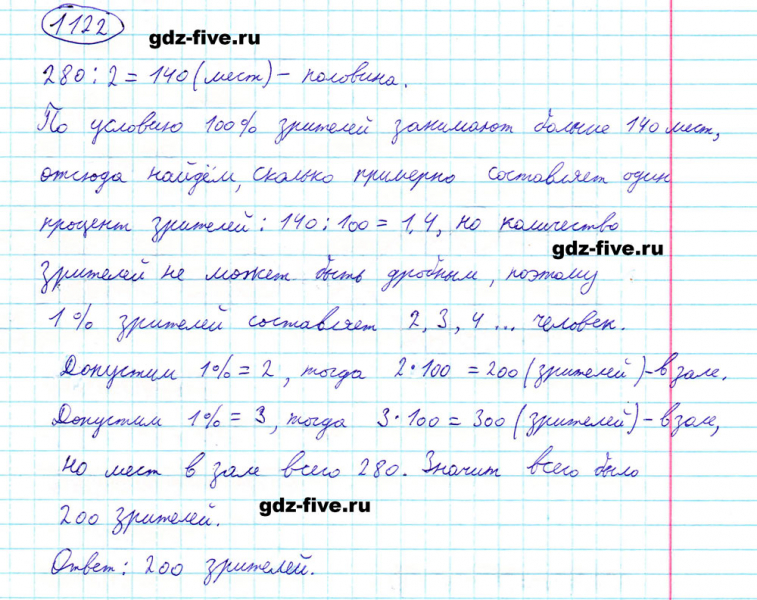 1122
gdz-five.ru
280 : 2 = 140 (мест) – половина.
По условию 100% зрителей занимают больше 140 мест,
отсюда найдём, сколько примерно составляет один
процент зрителей : 140 : 100 = 1,4, но количество
gdz-five.ru
зрителей не может быть дробным, поэтому
1% зрителей составляет 2, 3, 4 ... человек.
Допустим 1% = 2, тогда 2·100 = 200 (зрителей) – в зале.
Допустим 1% = 3, тогда 3·100 = 300 (зрителей) – в зале,
но мест в зале всего 280. Значит всего было
gdz-five.ru
200 зрителей.
Ответ: 200 зрителей.